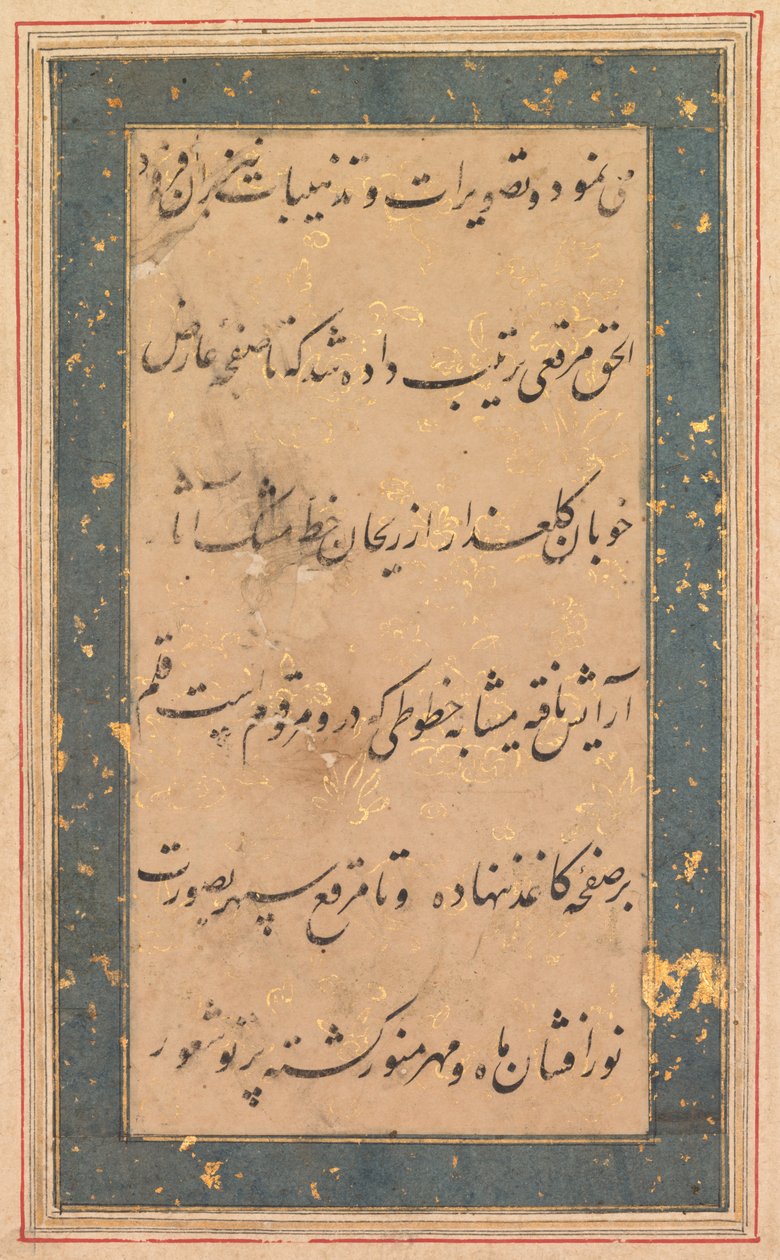 می نمود و تصویرات و تذهیبات نیز بران افزود
الحق مرقعی ترتیب داده شد که تا صفحهٔ عارض
خوبان گلعذار از ریحان خط مشک آثار
آرایش یافته مشابه خطوطی که درو مرقوم است قلم
بر صفحهٔ کاغذ نهاده و تا مرقع سپهر بصورت
نور افشان ماه و مهر منور گشته پرتو شعور